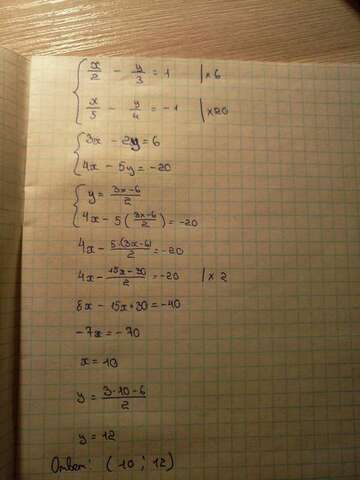 x/2 - y/3 = 1 | ×6
x/5 - y/4 = -1 | ×20
3x - 2y = 6
4x - 5y = -20
y = (3x-6)/2
4x - 5((3x-6)/2) = -20
4x - 5·(3x-6)/2 = -20
4x - (15x-30)/2 = -20 | ×2
8x - 15x+30 = -40
-7x = -70
x = 10
y = (3·10-6)/2
y = 12
Ответ: (10 ; 12)